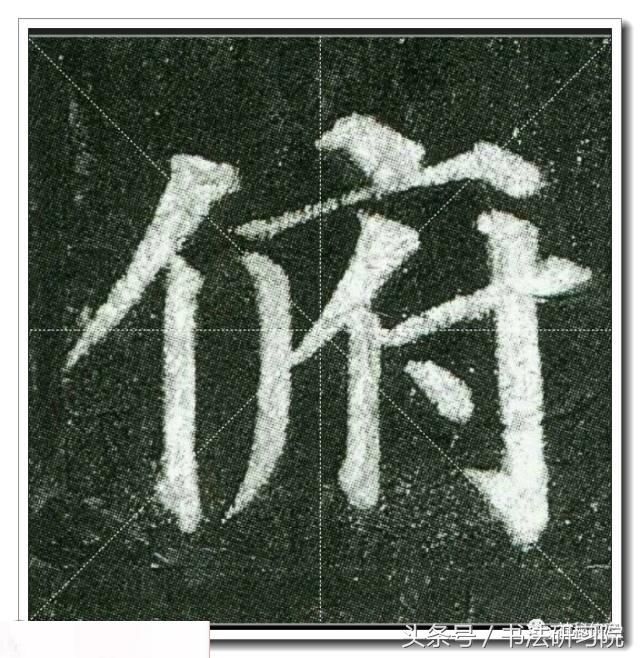 俯
头条号 / 书法研习院